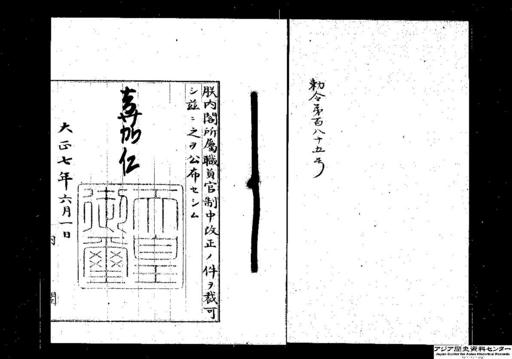 勅令第百八十五号
朕内閣所属職員官制中改正ノ件ヲ裁可
シ茲ニ之ヲ公布セシム
嘉仁
天皇
御璽
大正七年六月一日
内閣
アジア歴史資料センター
Japan Center for Asian Historical Records